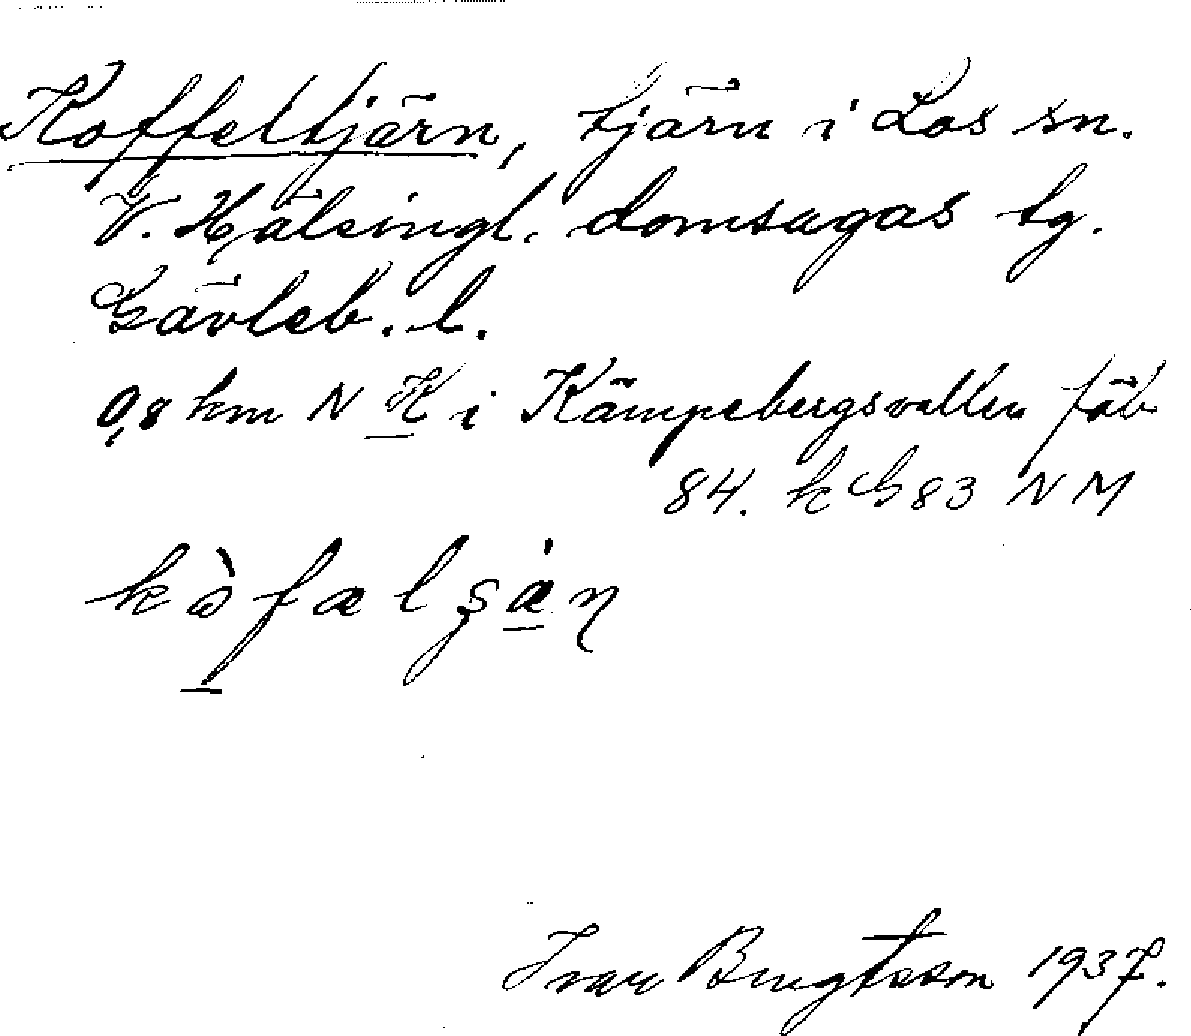 Koffeltjärn, tjärn i Los sn.
V. Hälsingl. domsagas tg.
Gävleb. l.
0,8 km N K i Kämpebergsvallen fäb
84. k G 83 N M
kὼfælʂȧ̱ɳ
Ivar Bengtsson 1937.